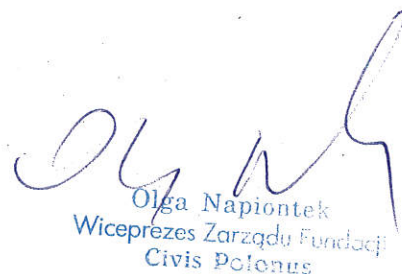 Olga Napiontek
Wiceprezes Zarządu Fundacji
Civis Polonus